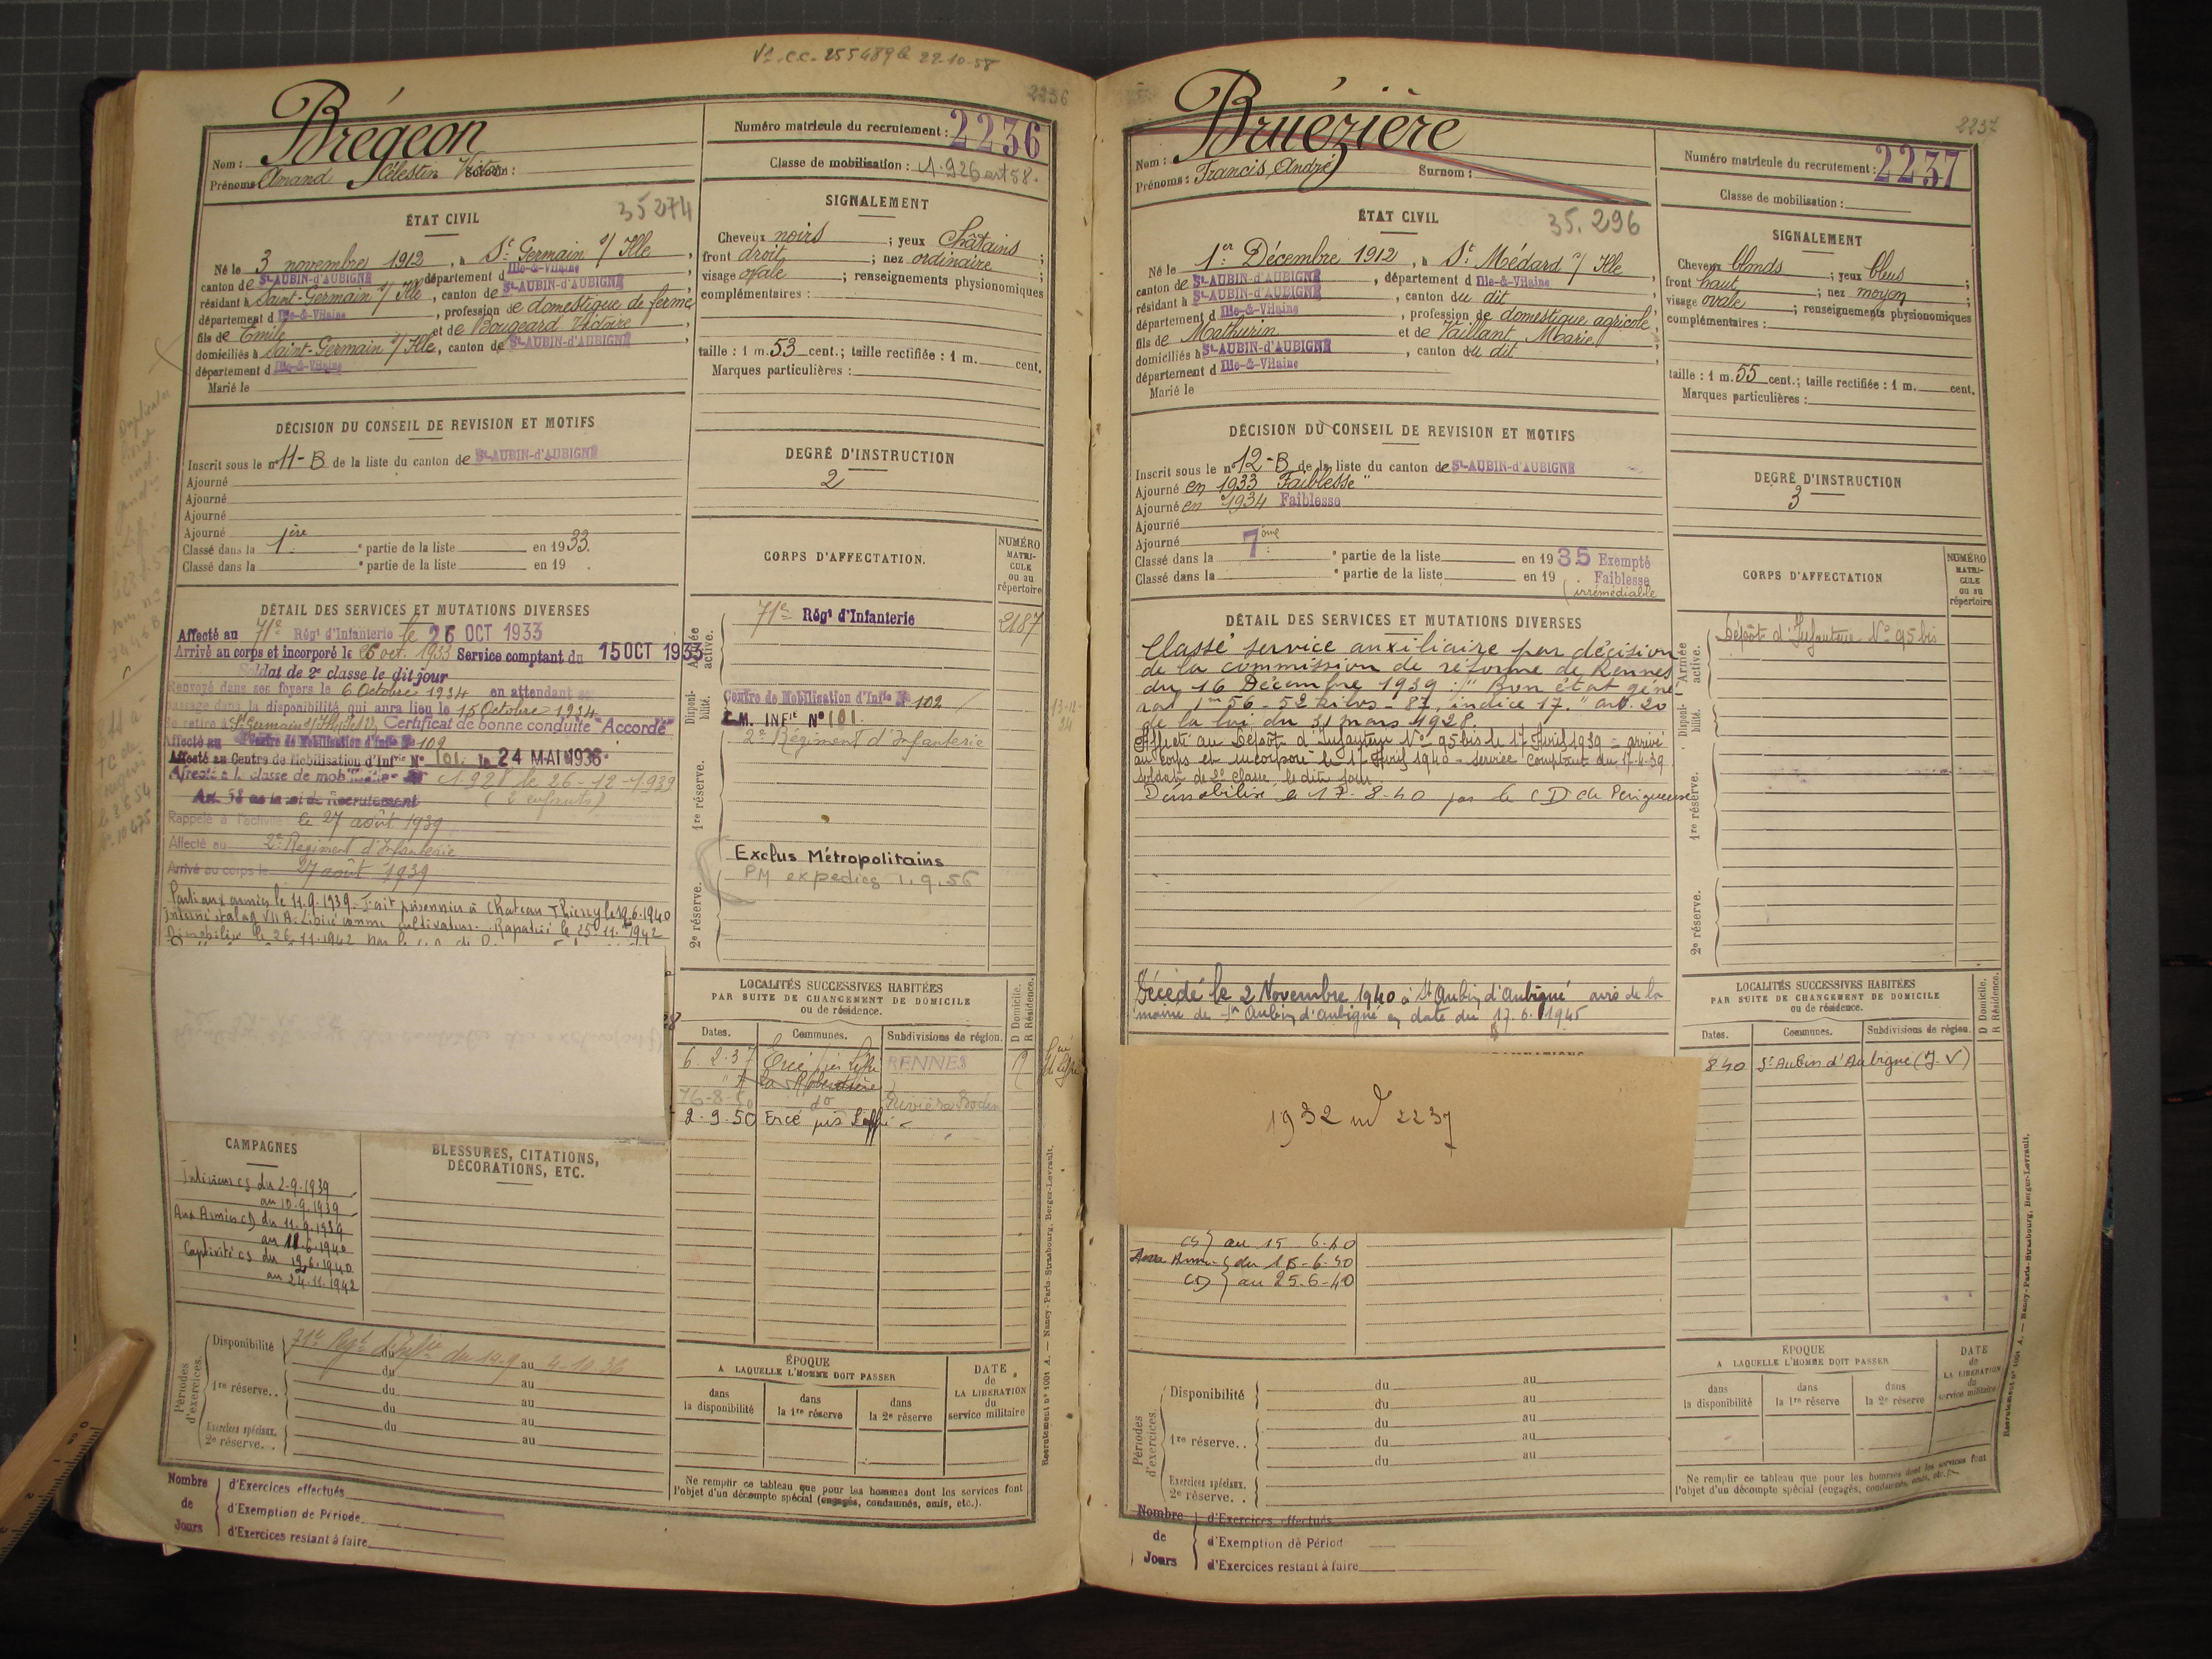 Vº C.C. 255489 le 22-10-58
2236
Brégeon
Nom :
Prénoms : Amand Célestin Victor Surnom :
Numéro matricule du recrutement : 2236
Classe de mobilisation : 1.926 art 58.
ÉTAT CIVIL
35274
Né le 3 novembre 1912, à St Germain s/ Ille,
canton de St-AUBIN-d'AUBIGNÉ département d Ille-&-Vilaine
résidant à Saint-Germain s/ Ille, canton de St-AUBIN-d'AUBIGNÉ
département d Ille-&-Vilaine, profession de domestique de ferme
fils de Emile et de Bougeard Victoire,
domiciliés à Saint-Germain s/ Ille, canton de St-AUBIN-d'AUBIGNÉ
département d Ille-&-Vilaine
Marié le
SIGNALEMENT
Cheveux noirs ; yeux châtains ;
front droit ; nez ordinaire ;
visage ovale ; renseignements physionomiques
complémentaires :
taille : 1 m. 53 cent.; taille rectifiée : 1 m. cent.
Marques particulières :
DÉCISION DU CONSEIL DE REVISION ET MOTIFS
Inscrit sous le nº 11-B de la liste du canton de St-AUBIN-d'AUBIGNÉ
Ajourné
Ajourné
Ajourné
Ajourné
Classé dans la 1ère partie de la liste en 1933.
Classé dans la e partie de la liste en 19 .
DEGRÉ D'INSTRUCTION
2
DÉTAIL DES SERVICES ET MUTATIONS DIVERSES
Affecté au 71e Régt d'Infanterie le 26 OCT 1933
Arrivé au corps et incorporé le 26 oct. 1933 Service comptant du 15 OCT 1933
Soldat de 2e classe le dit jour
Renvoyé dans ses foyers le 6 Octobre 1934 en attendant
passage dans la disponibilité qui aura lieu le 15 Octobre 1934
Se retire à St Germain s/ Ille (I.&V.) Certificat de bonne conduite "Accordé"
Affecté au Centre de Mobilisation d'Infie Nº 102
Affecté au Centre de Mobilisation d'Infrie Nº 101 le 24 MAI 1936
Affecté à la classe de mobilisation 1.928 le 26-12-1939
Art. 58 de la loi de Recrutement (2 enfants)
Rappelé à l'activité le 27 août 1939
Affecté au 2e Régiment d'Infanterie
Arrivé au corps le 27 août 1939
Parti aux armées le 11.9.1939. Fait prisonnier à Chateau Thierry le 12.6.1940
interné stalag VII A. Libéré comme cultivateur. Rapatrié le 25.11.1942
Démobilisé le 26.11.1942 par le
CORPS D'AFFECTATION.
NUMÉRO MATRI-CULE ou au répertoire
Armée active.
71e Régt d'Infanterie 2187
Disponibilité.
Centre de Mobilisation d'Infie Nº 102
C.M. INFie Nº 101
2e Régiment d'Infanterie
1re réserve.
Exclus Métropolitains
PM expediée 1.9.56
2e réserve.
LOCALITÉS SUCCESSIVES HABITÉES
PAR SUITE DE CHANGEMENT DE DOMICILE
ou de résidence.
Dates. Communes. Subdivisions de région. D Domicile. R Résidence.
6.2.37 Ercé près Liffré RENNES R
16-8-50 dº
2.9.50 Ercé près Liffré
CAMPAGNES
BLESSURES, CITATIONS,
DÉCORATIONS, ETC.
Intérieur CS du 2-9-1939
au 10.9.1939
Aux Armées CD du 11.9.1939
au 11.6.1940
Captivité CS du 12.6.1940
au 24.11.1942
Périodes d'exercices.
Disponibilité 71e Régt d'Infie du 12.9 au 4-10.36
du au
1re réserve.. du au
du au
Exercices spéciaux.
2e réserve. . au
ÉPOQUE
A LAQUELLE L'HOMME DOIT PASSER
dans la disponibilité dans la 1re réserve dans la 2e réserve
DATE de LA LIBÉRATION du service militaire
Ne remplir ce tableau que pour les hommes dont les services font
l'objet d'un décompte spécial (engagés, condamnés, omis, etc.).
Nombre de Jours
d'Exercices effectués
d'Exemption de Période
d'Exercices restant à faire
Recrutement nº 1001 A. — Nancy-Paris-Strasbourg, Berger-Levrault.
2237
Bruézière
Nom :
Prénoms : Francis, André Surnom :
Numéro matricule du recrutement : 2237
Classe de mobilisation :
ÉTAT CIVIL
35.296
Né le 1er Décembre 1912, à St Médard s/ Ille,
canton de St-AUBIN-d'AUBIGNÉ, département d Ille-&-Vilaine
résidant à St-AUBIN-d'AUBIGNÉ, canton du dit
département d Ille-&-Vilaine, profession de domestique agricole,
fils de Mathurin et de Vaillant Marie,
domiciliés à St-AUBIN-d'AUBIGNÉ, canton du dit
département d Ille-&-Vilaine
Marié le
SIGNALEMENT
Cheveux blonds ; yeux bleus
front haut ; nez moyen ;
visage ovale ; renseignements physionomiques
complémentaires :
taille : 1 m. 55 cent.; taille rectifiée : 1 m. cent.
Marques particulières :
DÉCISION DU CONSEIL DE REVISION ET MOTIFS
Inscrit sous le nº 12-B de la liste du canton de St-AUBIN-d'AUBIGNÉ
Ajourné en 1933 "Faiblesse"
Ajourné en 1934 Faiblesse
Ajourné
Ajourné
Classé dans la 7ème partie de la liste en 1935 Exempté
Classé dans la e partie de la liste en 19 Faiblesse
irrémédiable
DEGRÉ D'INSTRUCTION
3
DÉTAIL DES SERVICES ET MUTATIONS DIVERSES
Classé service auxiliaire par décision
de la commission de réforme de Rennes
du 16 Décembre 1939 : "Bon état géné-
ral 1m56 - 52 kilos - 87, indice 17." art. 20
de la loi du 31 mars 1928.
Affecté au Dépôt d'Infanterie Nº 95 bis le 17 Avril 1939 = arrivé
au corps et incorporé le 17 Avril 1940 - service comptant du 17.4.39
soldat de 2e classe le dit jour
Démobilisé le 17-8-40 par le CD de Périgueux
Décédé le 2 Novembre 1940 à St Aubin d'Aubigné avis de la
mairie de St Aubin d'Aubigné en date du 17.6.1945
CORPS D'AFFECTATION
NUMÉRO MATRI-CULE ou au répertoire
Armée active.
Dépôt d'Infanterie Nº 95 bis
Disponibilité.
1re réserve.
2e réserve.
LOCALITÉS SUCCESSIVES HABITÉES
PAR SUITE DE CHANGEMENT DE DOMICILE
ou de résidence.
Dates. Communes. Subdivisions de région. D Domicile. R Résidence.
8.40 St Aubin d'Aubigné (I.V)
1932 nº 2237
CS au 15-6-40
Aux Armées du 16-6-40
CD au 25-6-40
Périodes d'exercices.
Disponibilité du au
du au
1re réserve. . du au
du au
du au
Exercices spéciaux.
2e réserve. .
ÉPOQUE
A LAQUELLE L'HOMME DOIT PASSER
dans la disponibilité dans la 1re réserve dans la 2e réserve
DATE de LA LIBÉRATION du service militaire
Ne remplir ce tableau que pour les hommes dont les services font
l'objet d'un décompte spécial (engagés, condamnés, omis, etc.).
Nombre de Jours
d'Exercices effectués
d'Exemption de Périod
d'Exercices restant à faire
Recrutement nº 1001 A. — Nancy-Paris-Strasbourg, Berger-Levrault.